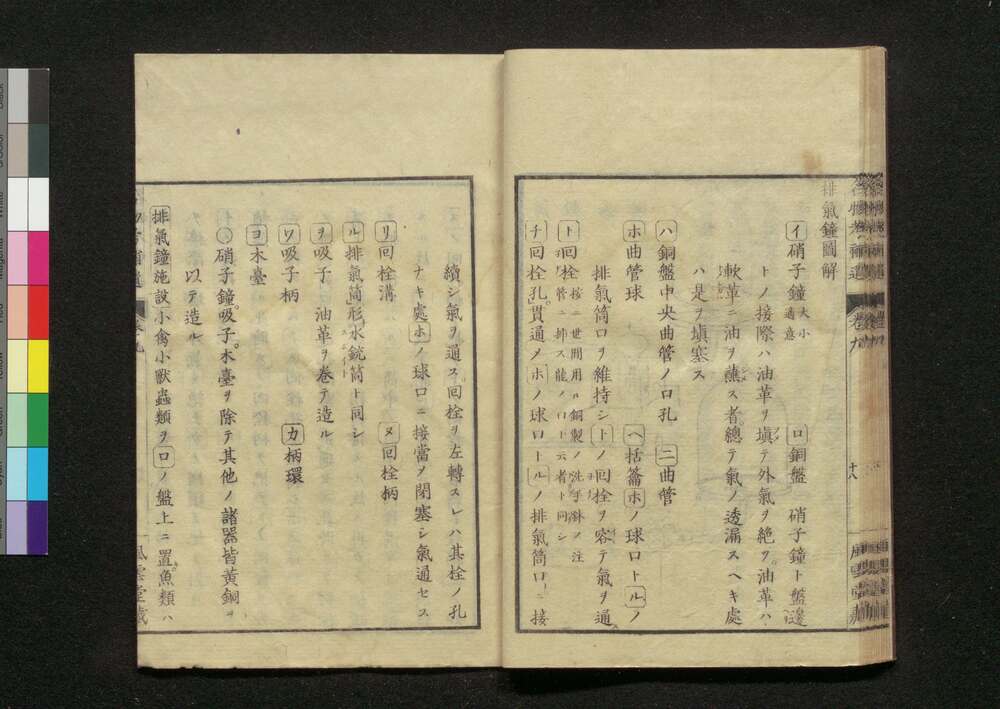 排氣鐘圖解
イ硝子鐘 大小適意 ロ銅盤 硝子鐘ト盤邊
トノ接際ハ油革ヲ塡テ外氣ヲ絶ツ。油革ハ
軟革ニ油ヲ蘸ス者。總テ氣ノ透漏スヘキ處
ハ是ヲ塡塞ス
ハ銅盤中央曲管ノ口孔 ニ曲管
ホ曲管球 ヘ括籥ホノ球口トルノ
排氣筒口ヲ維持シトノ回栓ヲ容テ氣ヲ通ス
ト回栓 按ニ世間用ル銅製ノ洗手斛ノ注管ニ挿ス龍ノ口ト云者ト同シ
チ回栓孔。貫通メホノ球口トルノ排氣筒口ニ接
續シ氣ヲ通ス。回栓ヲ左轉スレハ其栓ノ孔
ナキ處ホノ球口ニ接當ヲ閉塞シ氣通セス
リ回栓溝 ヌ回栓柄
ル排氣筒 形水銃筒ト同シ
ヲ吸子 油革ヲ卷テ造ル
ワ吸子柄 カ柄環
ヨ木臺
○硝子鐘。吸子。木臺ヲ除テ其他ノ諸器皆黄銅ヲ
以テ造ル
排氣鐘施設小禽小獸蟲類ヲロノ盤上ニ置魚類ハ
卷九
十八